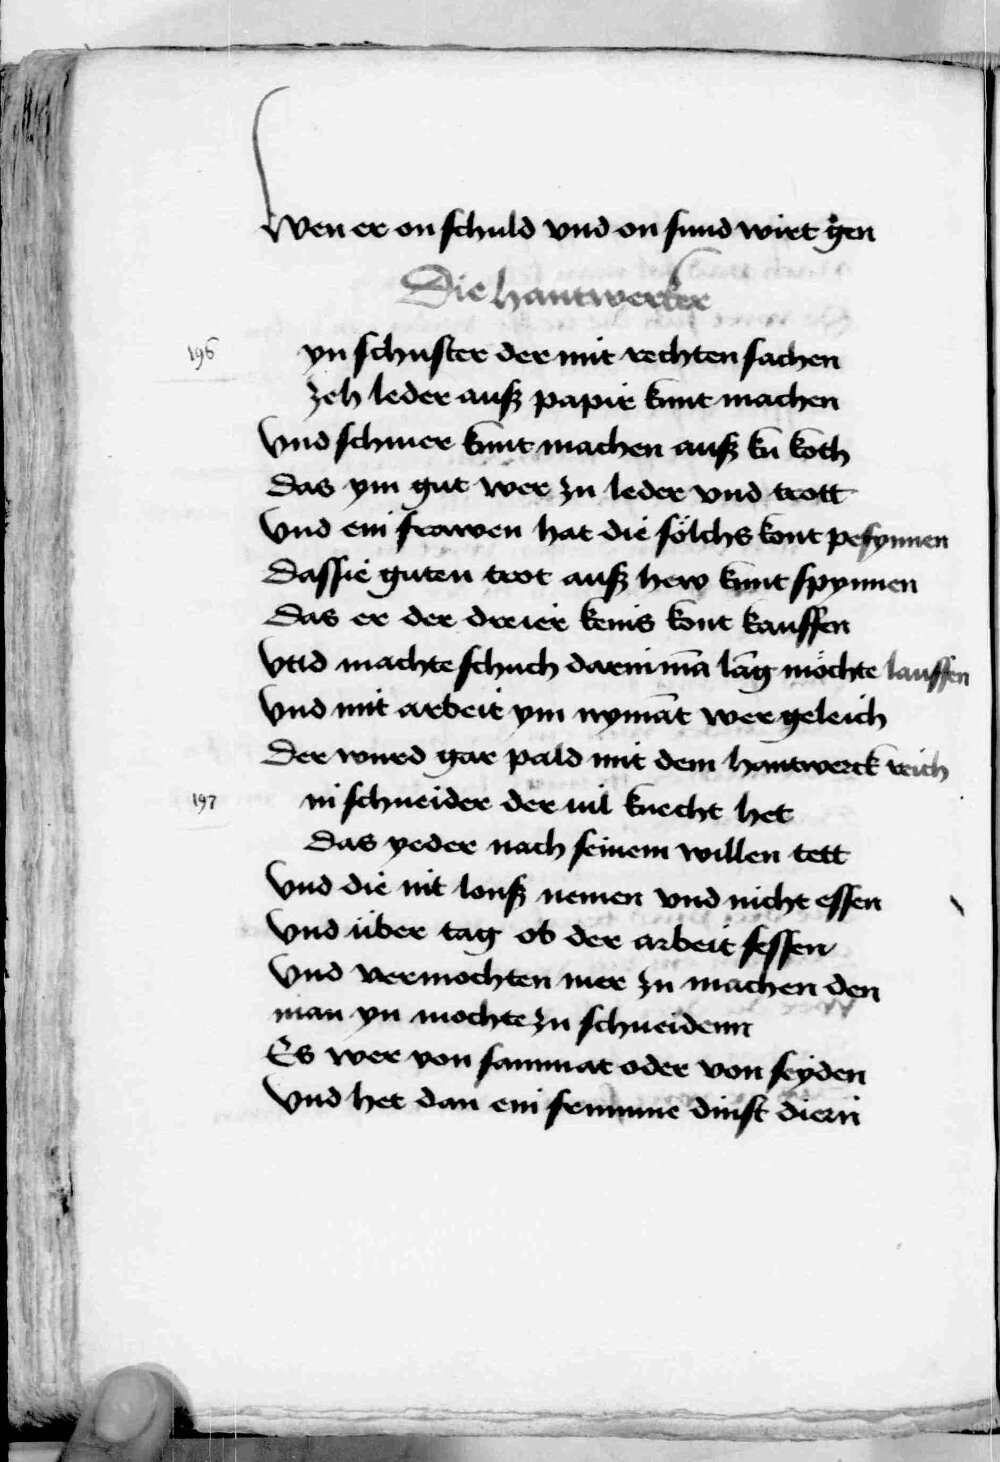 Wen er on schuld vnd on sund wirt gen
Die hantwercker
196
yn schuster der mit rechten sachen
zeh leder auß papir kunt machen
Vnd schmer kunt machen auß ku koth
das ym gut wer zu leder vnd trott
Vnd ein frawen hat die sölchs kont pesynnen
das sie guten trot auß hew kunt spynnen
das er der dreier keins kont kauffen
Vnd machte schuch darin mā lāg möchte lauffen
Vnd mit arbeit ym nymāt wer geleich
der wurd gar pald mit dem hantwerck reich
197
in schneider der uil knecht het
das yeder nach seinem willen tett
Vnd die nit lonß nemen vnd nicht essen
Vnd über tag ob der arbeit sessen
Vnd vermochten mer zu machen den
man yn mochte zu schneidenn
Es wer von sammat oder von seyden
Vnd het dan ein frumme dinst diern